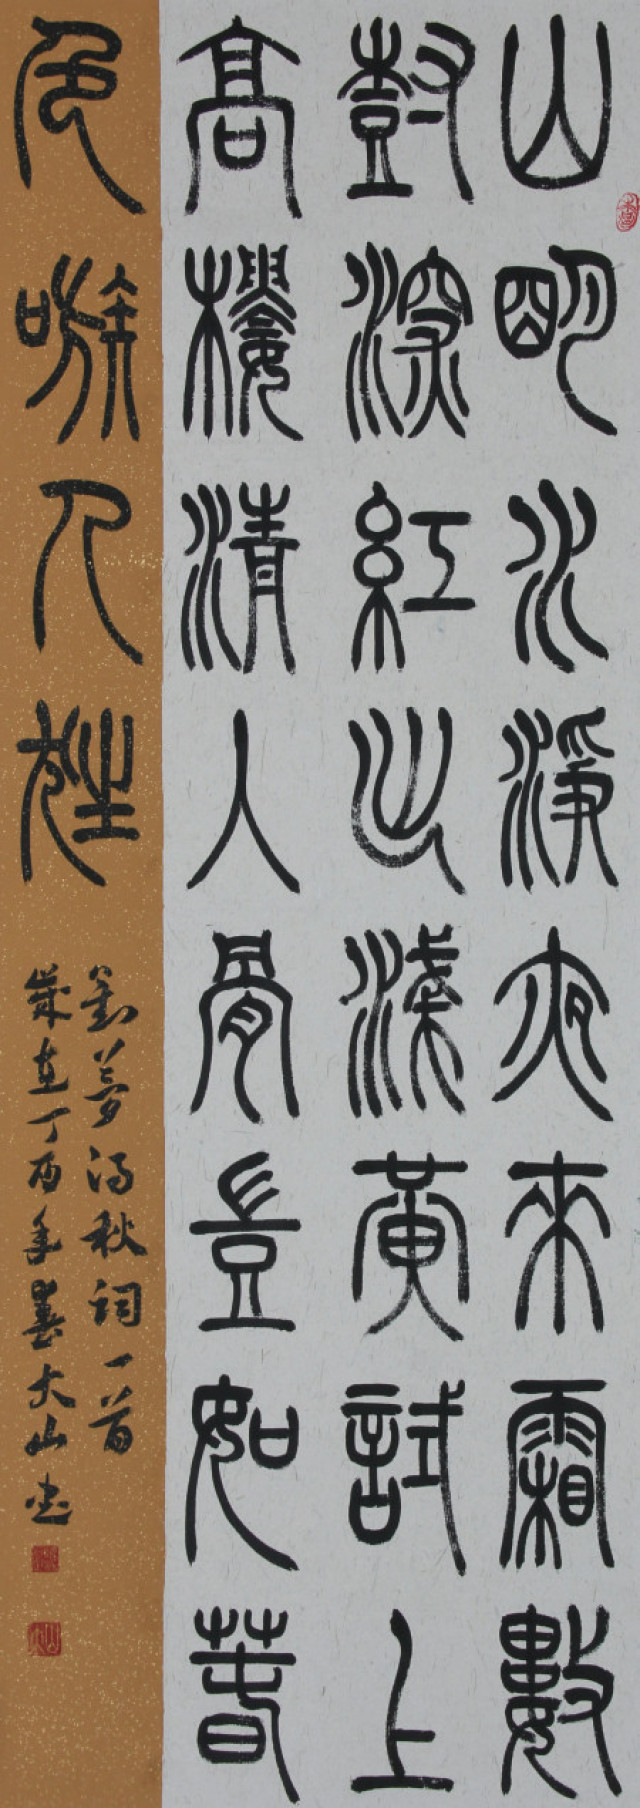 山明水淨夜來霜數
尌深紅出淺黃試上
高樓清入骨豈如春
色嗾人狂
劉夢得秋詞一首
歲在丁酉年春大山書